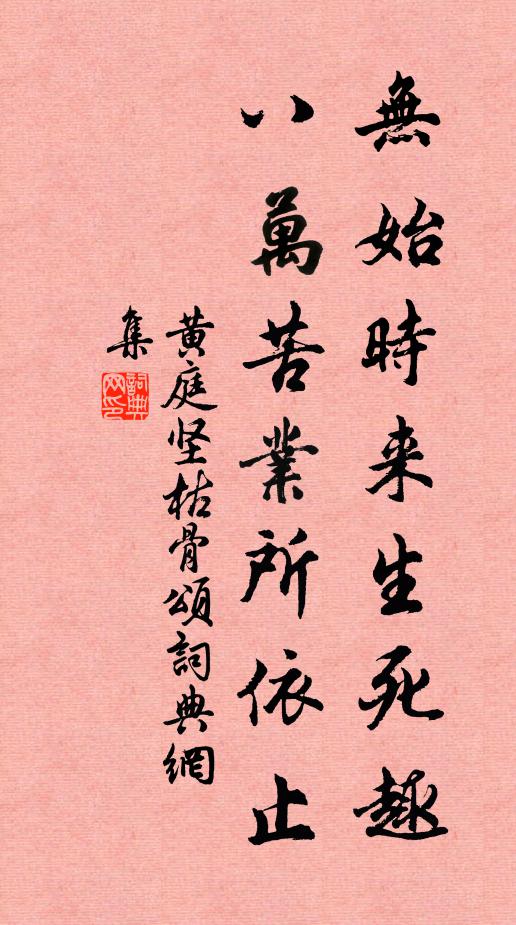 無始時来生死趣
八萬苦業所依止
黄庭坚枯骨頌詞典網
集
詞典
网印